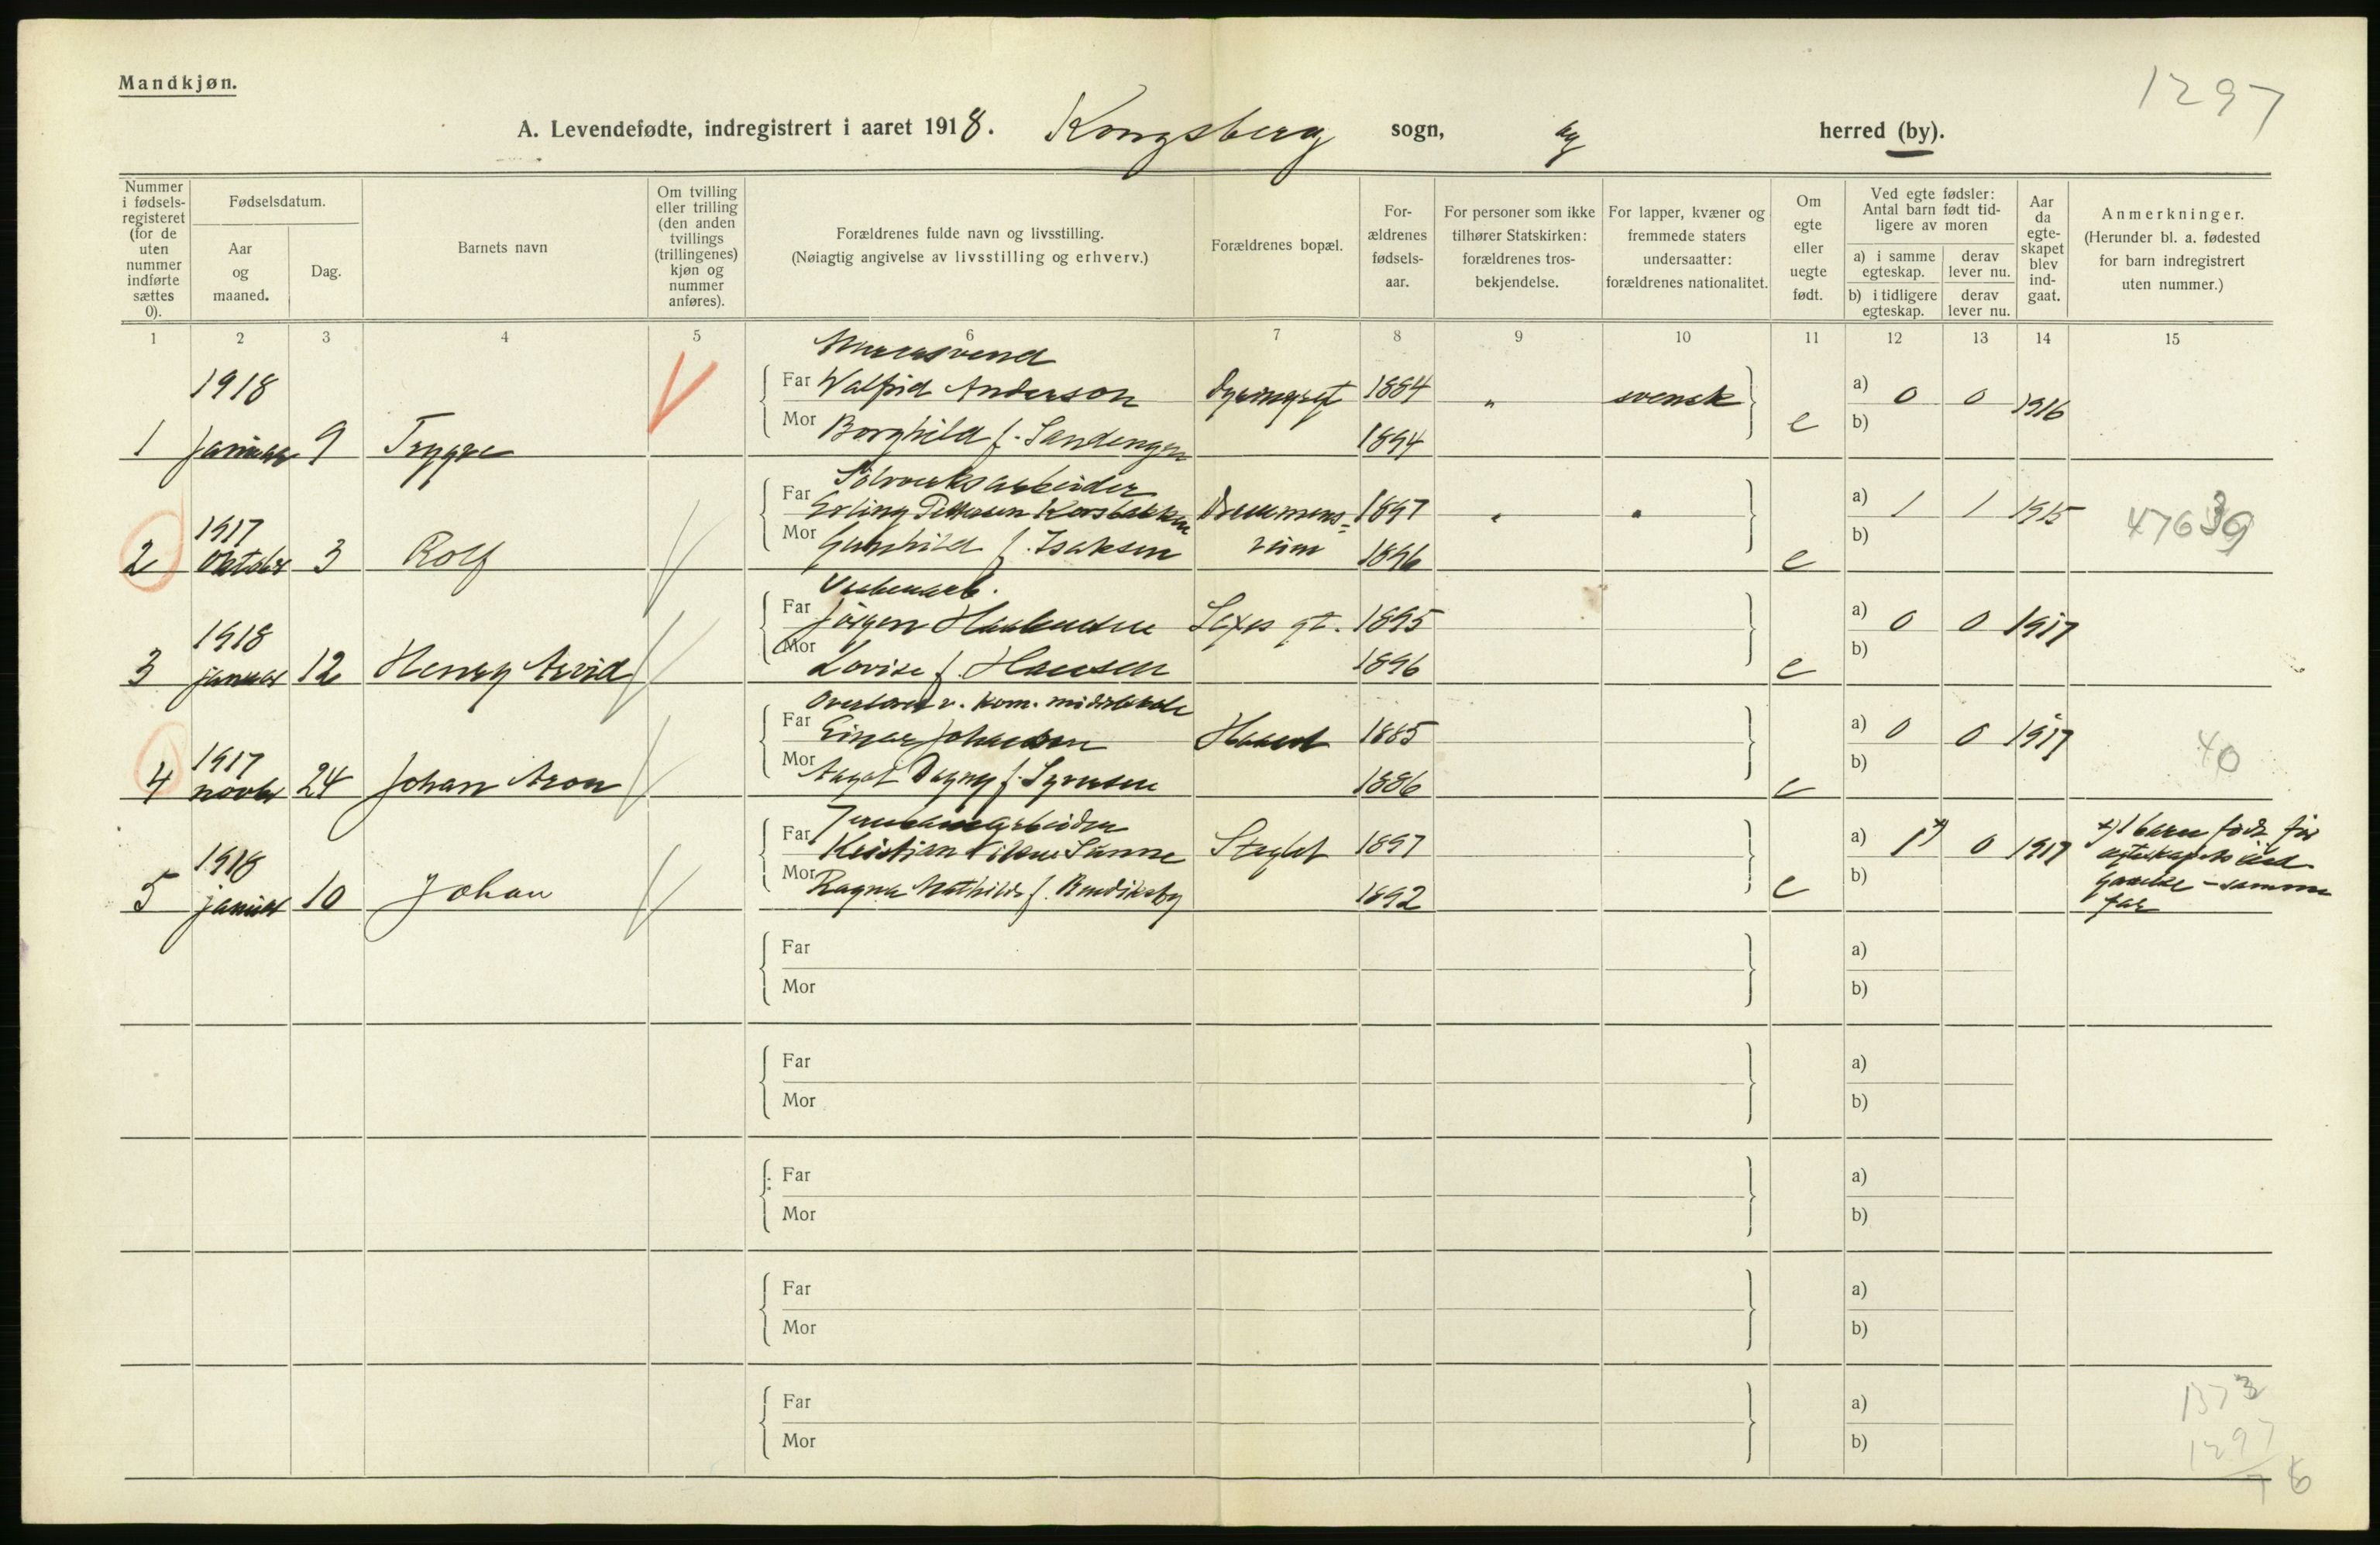 Mandkjøn.
1297
A. Levendefødte, indregistrert i aaret 1918. Kongsberg sogn, by herred (by).
Nummer i fødsels-registeret (for de uten nummer indførte sættes 0).
Fødselsdatum.
Aar og maaned.
Dag.
Barnets navn
Om tvilling eller trilling (den anden tvillings (trillingenes) kjøn og nummer anføres).
Forældrenes fulde navn og livsstilling.
(Nøiagtig angivelse av livsstilling og erhverv.)
Forældrenes bopæl.
For-ældrenes fødsels-aar.
For personer som ikke tilhører Statskirken: forældrenes tros-bekjendelse.
For lapper, kvæner og fremmede staters undersaatter: forældrenes nationalitet.
Om egte eller uegte født.
Ved egte fødsler: Antal barn født tid-ligere av moren
a) i samme egteskap.
derav lever nu.
b) i tidligere egteskap.
derav lever nu.
Aar da egte-skapet blev ind-gaat.
Anmerkninger.
(Herunder bl. a. fødested for barn indregistrert uten nummer.)
1 2 3 4 5 6 7 8 9 10 11 12 13 14 15
Murersvend
1918
Far Walfrid Anderson 1884 " svensk a) 0 0 1916
Mor Borghild f. Sandengen 1894 e b)
1 Januar 9 Trygve
Sølvverksarbeider
Far Erling Pettersen Korsbakken Drammens- 1897 " " a) 1 1 1915
1917
Mor Gunhild f. Isaksen veien 1896 e b)
2 Oktober 3 Rolf
47639
Far Jørgen Haakensen gt. 1895 a) 0 0 1917
1918
Mor Lovise f. Hansen 1896 e b)
3 januar 12 Henry Arvid
Overlærer v. kom. middelskole
Far Einar Johansen 1885 a) 0 0 1917
1917
Mor Aagot Dagny f. 1886 e b)
4 novbr 24 Johan Aron
40
Jernbanearbeider
Far Kristian Nilsen Sunne 1897 a) 1*) 0 1917
1918
Mor Ragna Mathilde f. Bendiksby 1892 e b)
5 januar 10 Johan
*) 1 barn født før
egteskapets ind
gaaelse – samme
far
Far a)
Mor b)
Far a)
Mor b)
Far a)
Mor b)
Far a)
Mor b)
Far a)
Mor b)
1373
1297
76